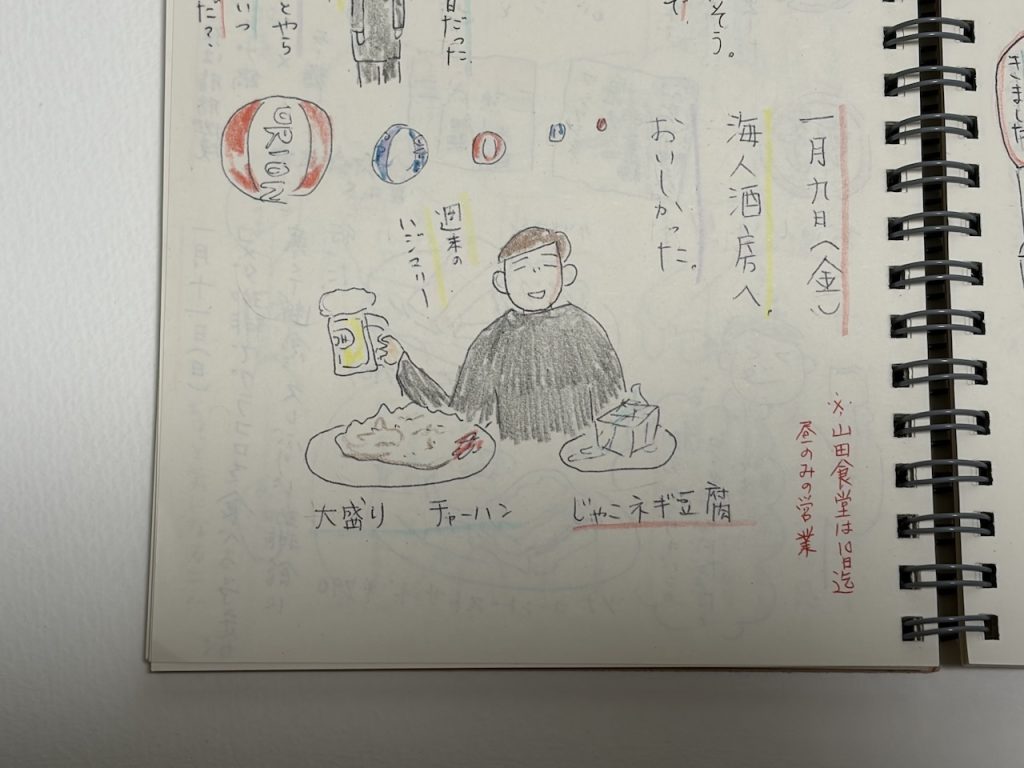 そう。
日だった
とやら
いつ
だ?
きました
一月九日(金)
海人酒房へ
おいしかった。
週末の
ORION
※山田食堂は10日迄
昼のみの営業
大盛り チャーハン
じゃこネギ豆腐